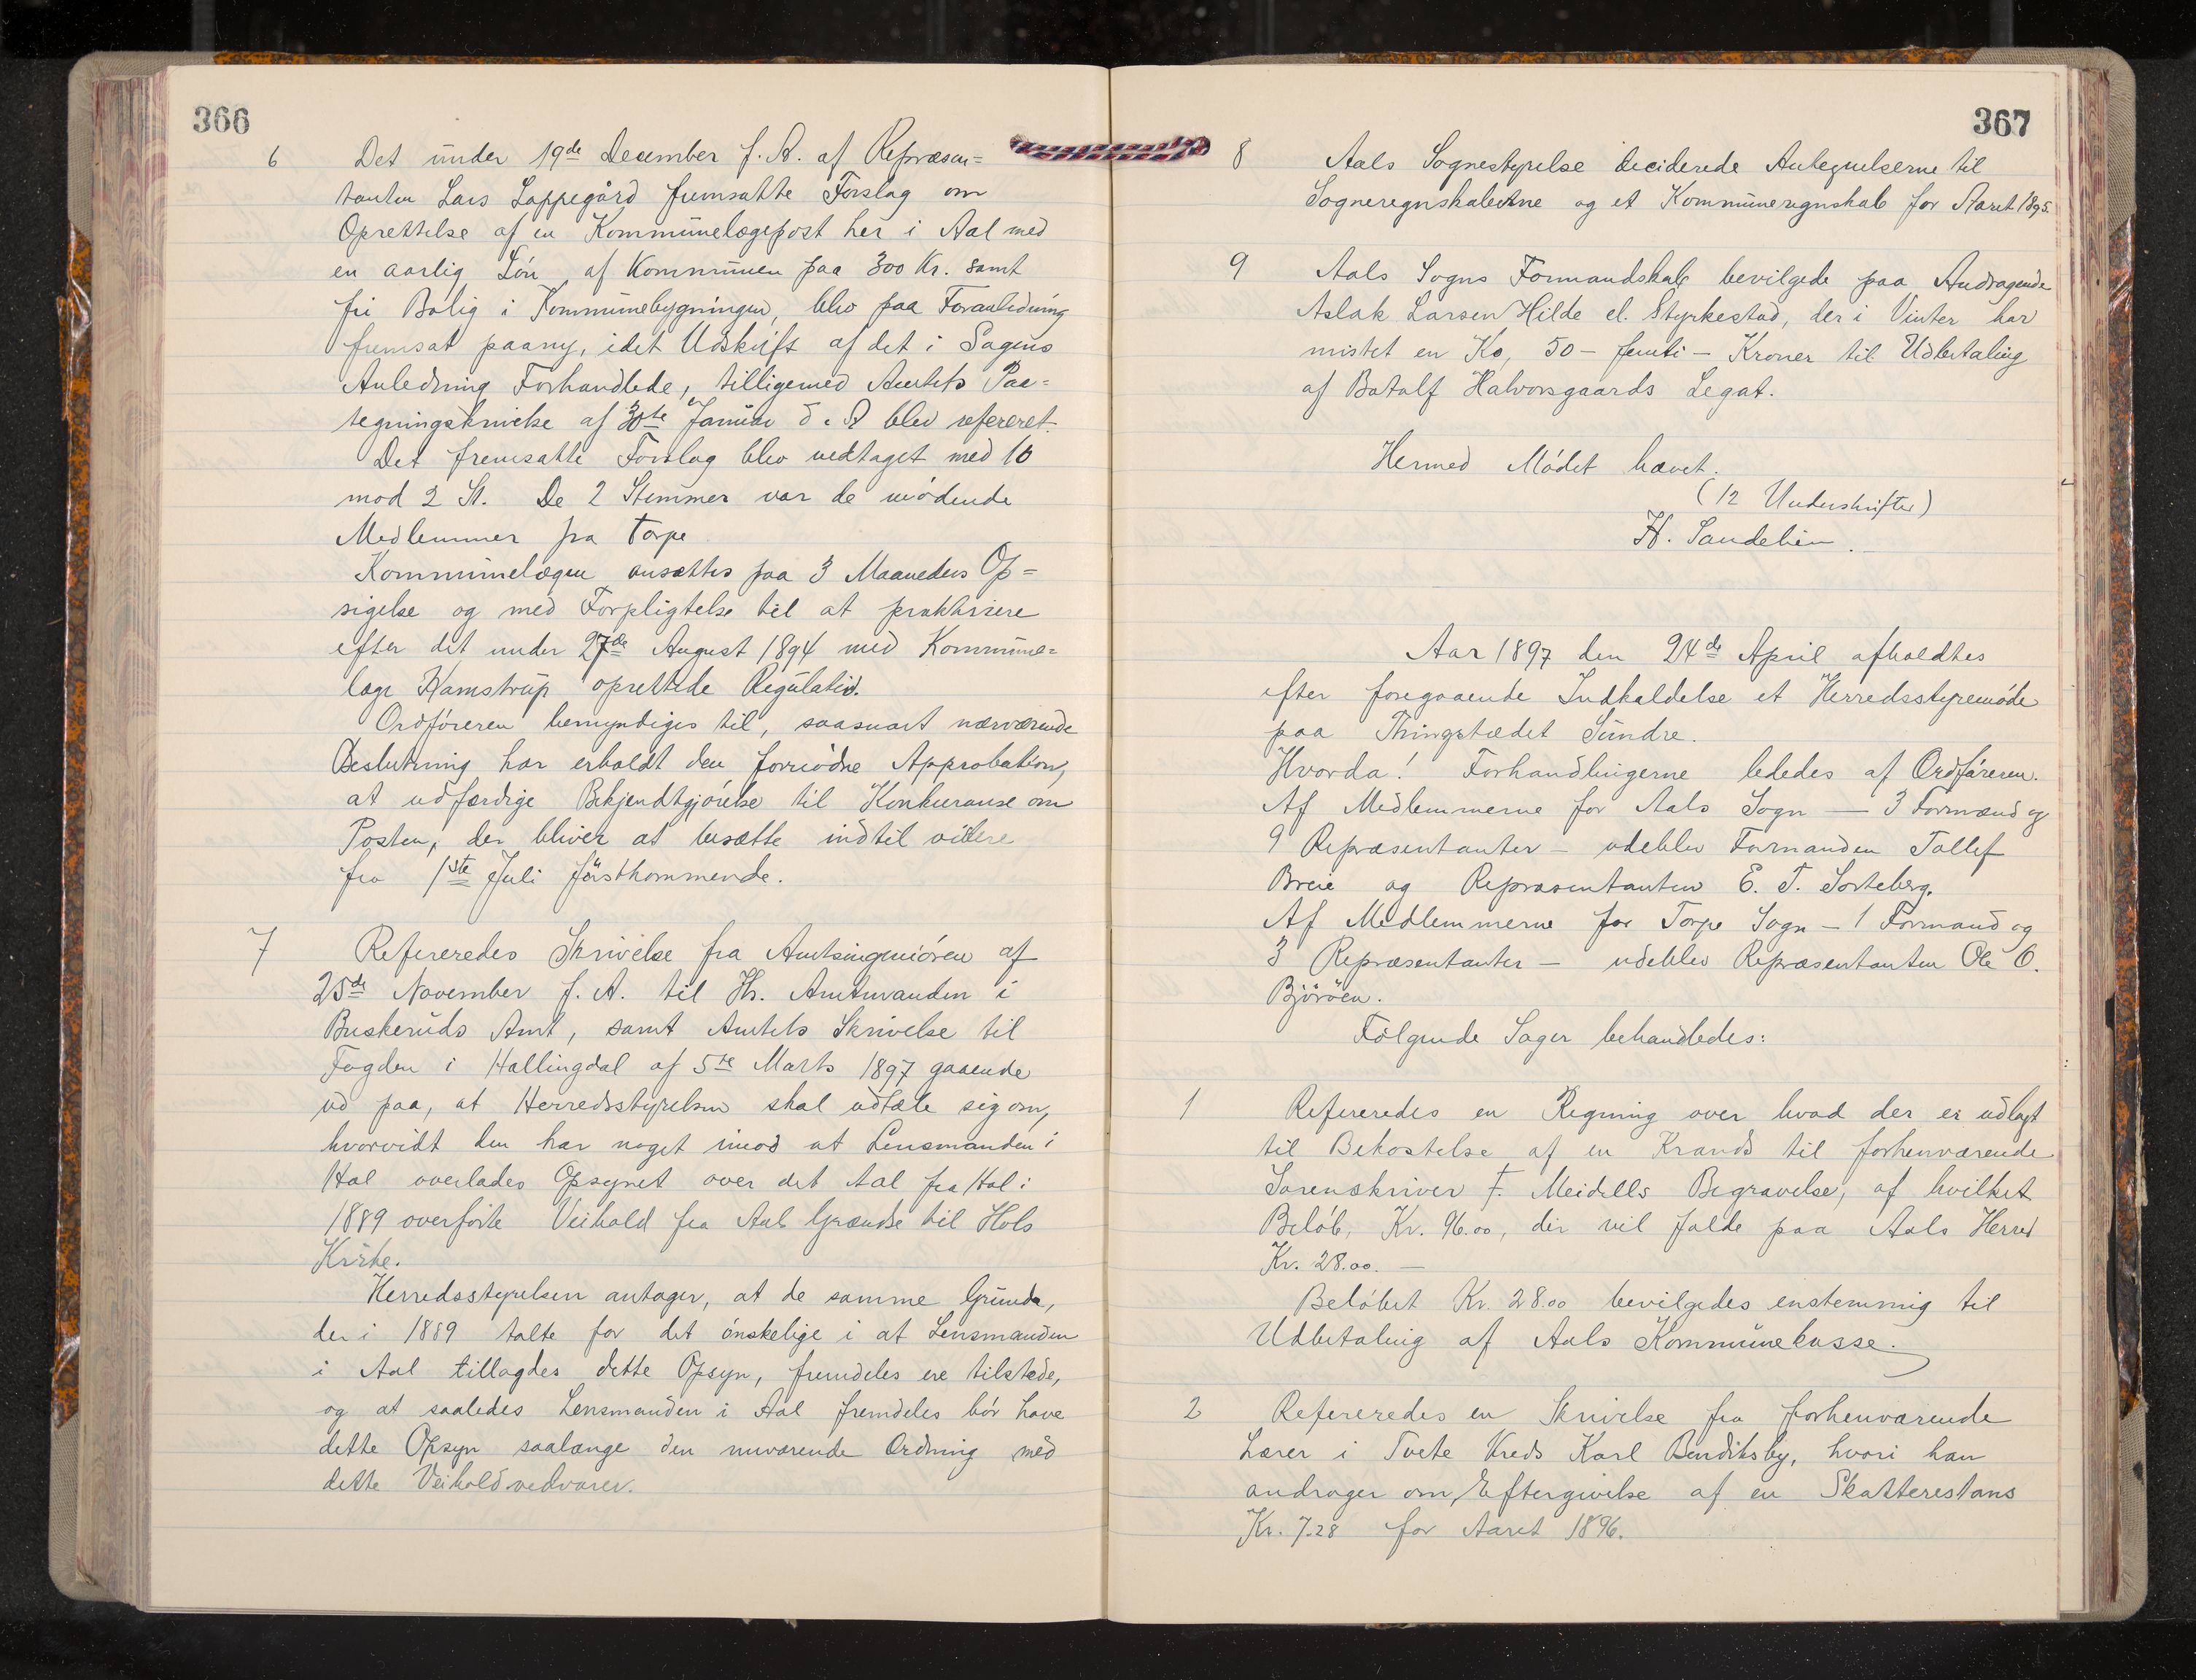 366
6 Det under 19de December f. A. af Repræsen=
tanten Lars Lappegård fremsatte Forslag om
Oprettelse af en Kommunelægepost her i Aal med
en aarlig Løn af Kommunen paa 300 Kr. samt
fri Bolig i Kommunebygningen, blev paa Foranledning
fremsat paany, idet Udskrift af det i Sagens
Anledning Forhandlede, tilligemed Amtets Paa=
tegningsskrivelse af 30te Januar d. A blev refereret.
Det fremsatte Forslag blev vedtaget med 10
mod 2 St. De 2 Stemmer var de mødende
Medlemmer fra Torpe
Kommunelægen ansættes paa 3 Maaneders Op=
sigelse og med Forpligtelse til at praktisere
efter det under 27de August 1894 med Kommune=
læge Hamstrup oprettede Regulativ.
Ordføreren bemyndiges til, saasnart nærværende
Beslutning har erholdt den fornødne Approbation,
at udfærdige Bekjendtgjørelse til Konkuranse om
Posten, der bliver at besætte indtil videre
fra 1ste Juli førstkommende.
7 Refereredes Skrivelse fra Amtsingeniøren af
25de November f. A. til Hr. Amtmanden i
Buskeruds Amt, samt Amtets Skrivelse til
Fogden i Hallingdal af 5te Marts 1897 gaaende
ud paa, at Herredsstyrelsen skal udtale sig om,
hvorvidt den har noget imod at Lensmanden i
Hol overlades Opsynet over det Aal fra Hol i
1889 overførte Veihold fra Aals Grændse til Hols
Kirke.
Herredsstyrelsen antager, at de samme Grunde,
der i 1889 talte for det ønskelige i at Lensmanden
i Aal tillagdes dette Opsyn, fremdeles ere tilstede,
og at saaledes Lensmanden i Aal fremdeles bør have
dette Opsyn saalænge den nuværende Ordning med
dette Veihold vedvarer.
367
8 Aals Sognestyrelse deciderede Antegnelserne til
Sogneregnskaberne og et Kommuneregnskab for Aaret 1895.
9 Aals Sogns Formandskab bevilgede paa Andragende
Aslak Larsen Hilde el. Styrkestad, der i Vinter har
mistet en Ko, 50 - femti - Kroner til Udbetaling
af Botolf Halvorsgaards Legat.
Hermed Mødet hævet.
(12 Underskrifter)
H. Sandelien.
Aar 1897 den 24de April afholdtes
efter foregaaende Indkaldelse et Herredsstyremøde
paa Thingstedet Sundre.
Hvorda! Forhandlingerne lededes af Ordføreren.
Af Medlemmerne for Aals Sogn — 3 Formænd og
9 Repræsentanter - udeblev Formanden Tollef
Breie og Repræsentanten E. T. Sorteberg.
Af Medlemmerne for Torpe Sogn - 1 Formand og
3 Repræsentanter - udeblev Repræsentanten Ole O.
Bjørøen.
Følgende Sager behandledes:
1 Refereredes en Regning over hvad der er udlagt
til Bekostelse af en Krands til forhenværende
Sorenskriver F. Meidells Begravelse, af hvilket
Beløb, Kr. 96.00, der vil falde paa Aals Herred
Kr. 28.00. —
Beløbet Kr. 28.00 bevilgedes enstemmig til
Udbetaling af Aals Kommunekasse.
2 Refereredes en Skrivelse fra forhenværende
Lærer i Tvete Kreds Karl Bendiksby, hvori han
andrager om Eftergivelse af en Skatterestans
Kr. 7.28 for Aaret 1896.